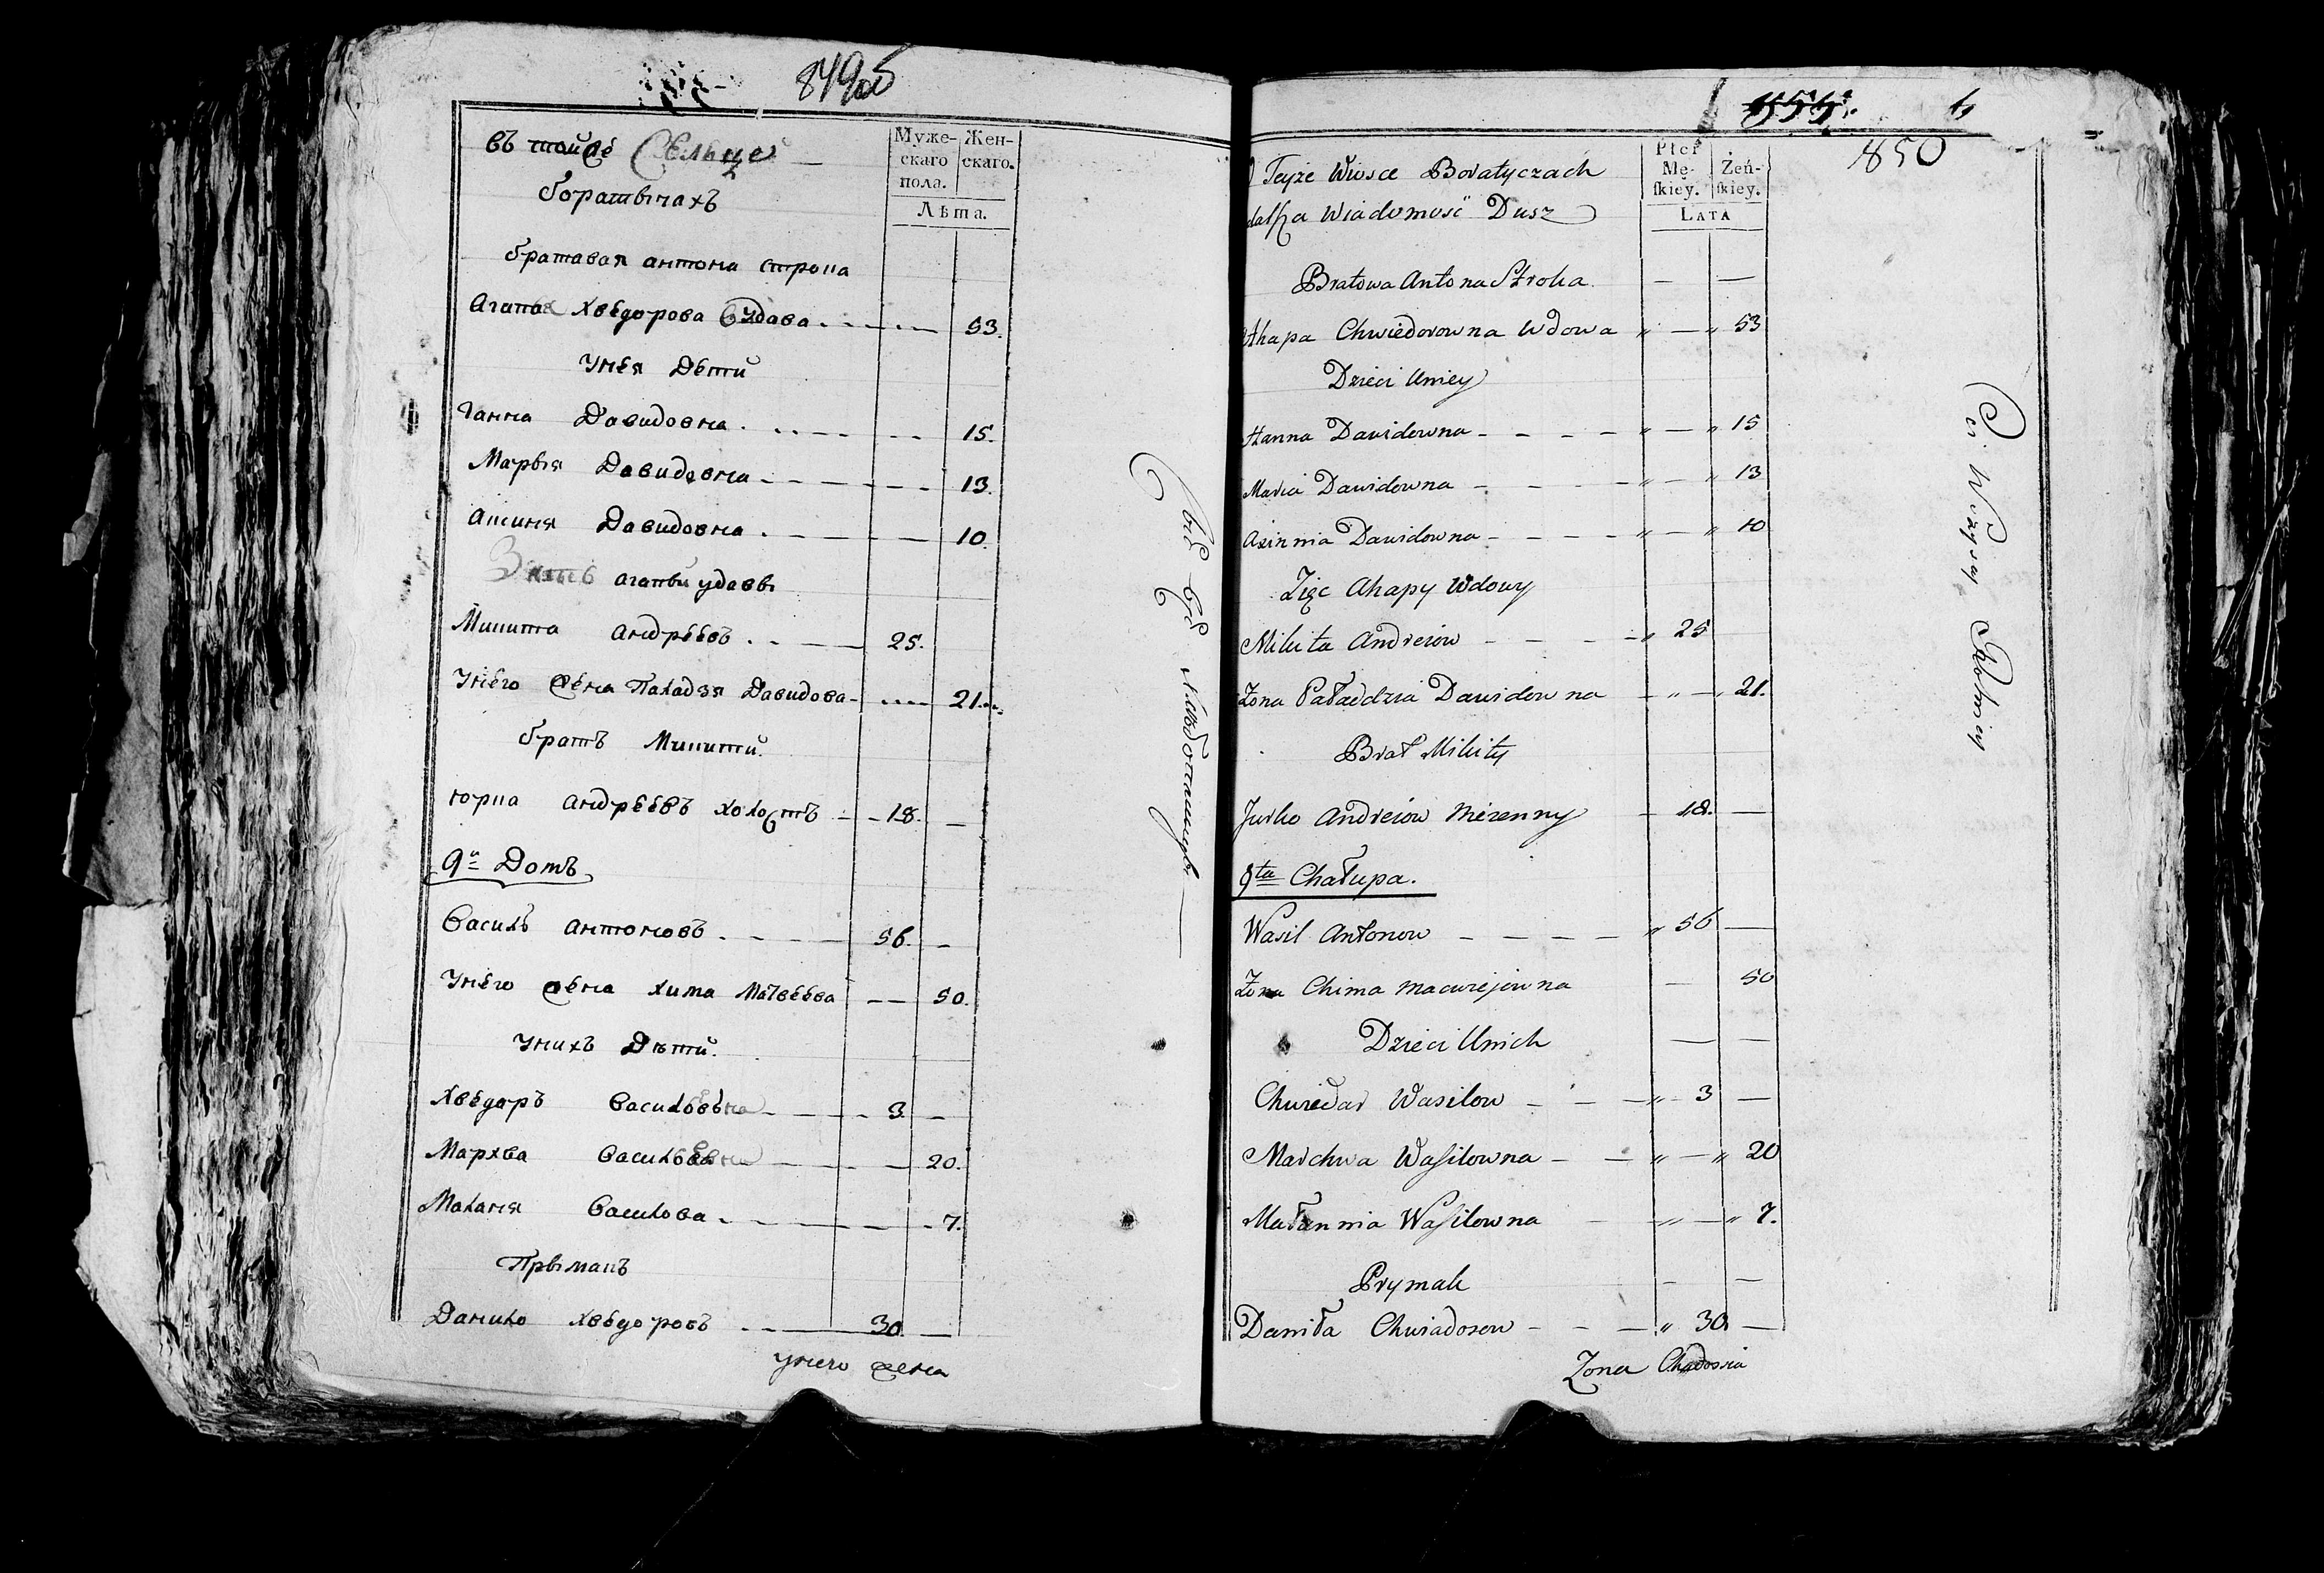 849об
въ тойже Сельце
Боратычахъ
Муже-
скаго
пола.
Жен-
скаго.
Лѣта.
братавая антона строка
Агапа Хведорова вдава 53.
Унея Дѣти
Ганна Давидовна 15.
Марья Давидовна 13.
Аксиня Давидовна 10.
Зять агапы удавы
Микита андреевъ 25.
Унего жена Паладзя Давидова 21.
братъ Микиты.
юрка андреевъ холостъ 18.
9й Домъ
Василь антоновъ 56.
Унего жена хима Матвеева 50.
Унихъ Дѣти.
Хведоръ Васильевъ 3.
Мархва Васильевна 20.
Маланя Василова 7.
Прымакъ
Данило хведоровъ 30.
унего жена
850
Teyże Wiosce Boratyczach
dalsza Wiadomość Dusz
Płci
Mę-
ſkiey.
Żeń-
ſkiey.
LATA
Bratowa Antona Stroka
Ahapa Chwiedorowna Wdowa 53
Dzieci Uniey
Hanna Dawidowna 15
Maria Dawidowna 13
Axinnia Dawidowna 10
Zięc Ahapy Wdowy
Mikita Andreiow 25
Zona Paładzia Dawidowna 21.
Brat Mikity
Jurko Andreiow Niezenny 18.
9ta Chałupa.
Wasil Antonow 56
Zona Chima Macwiejowna 50
Dzieci Unich
Chwiedar Wasilow 3
Marchwa Wasilowna 20
Małannia Wasilowna 7.
Prymak
Daniła Chwiadorow 30
Zona Chadosia
Ci Wszyscy Rolnicy